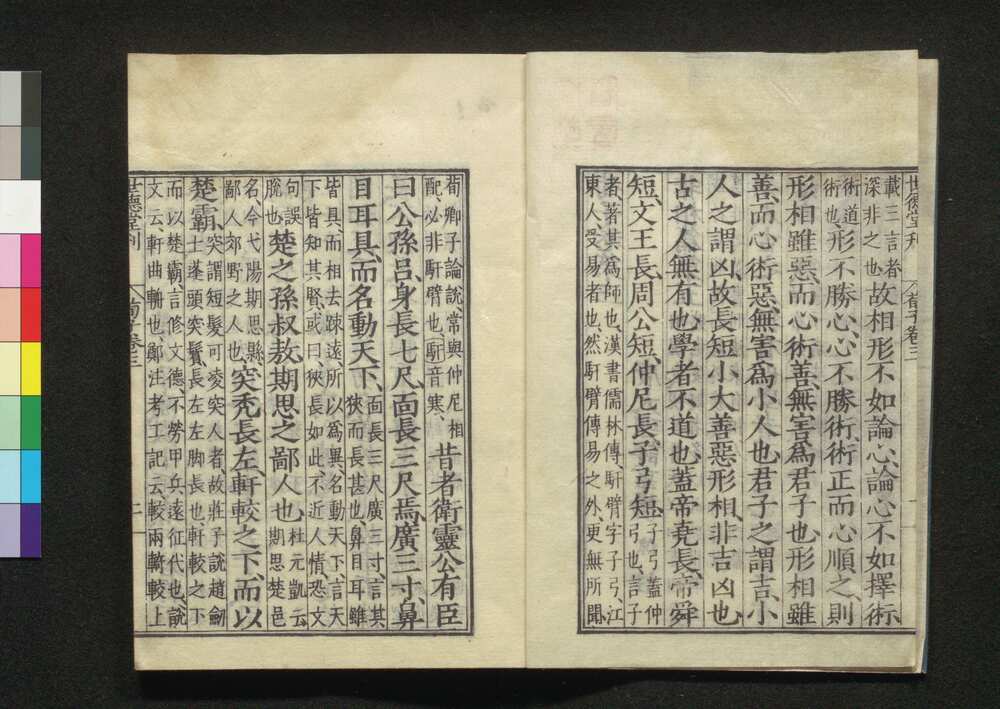 世德堂刊 荀子卷三 一
載三言者
深非之也
故相形不如論心論心不如擇術
術道
術也
形不勝心心不勝術術正而心順之則
形相雖惡而心術善無害為君子也形相雖
善而心術惡無害為小人也君子之謂吉小
人之謂凶故長短小大善惡形相非吉凶也
古之人無有也學者不道也蓋帝堯長帝舜
短文王長周公短仲尼長子弓短
子弓蓋仲
弓也言子
者著其為師也漢書儒林傳馯臂字子弓江
東人受易者也然馯臂傳易之外更無所聞
荀卿子論說常與仲尼相
配必非馯臂也馯音寒
昔者衛靈公有臣
曰公孫呂身長七尺面長三尺焉廣三寸鼻
目耳具而名動天下
面長三尺廣三寸言其
狹而長甚也鼻目耳雖
皆具而相去踈遠所以為異名動天下言天
下皆知其賢或曰狹長如此不近人情恐文
句誤
脫也
楚之孫叔敖期思之鄙人也
杜元凱云
期思楚邑
名今弋陽期思縣
鄙人郊野之人也
突禿長左軒較之下而以
楚霸
突謂短髮可凌突人者故莊子說趙劒
士蓬頭突鬢長左左脚長也軒較之下
而以楚霸言修文德不勞甲兵遠征代也說
文云軒曲輈也鄭注考工記云較兩輢較上
世德堂刊 荀子卷三 二